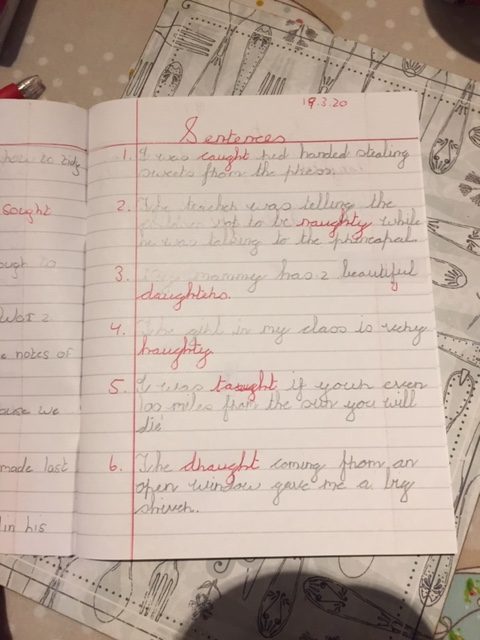 sought
ought to
e notes of
ause we
made last
in his
19.3.20
Sentences
1. I was caught red handed stealing
sweets from the press.
2. The teacher was telling the
children not to be naughty while
he was talking to the princapal.
3. mammy has 2 beautiful
daughters.
4. The girl in my class is very
haughty.
5. I was taught if your even
100 miles from the sun you will
die
6. The draught coming from an
open window gave me a big
shiver.